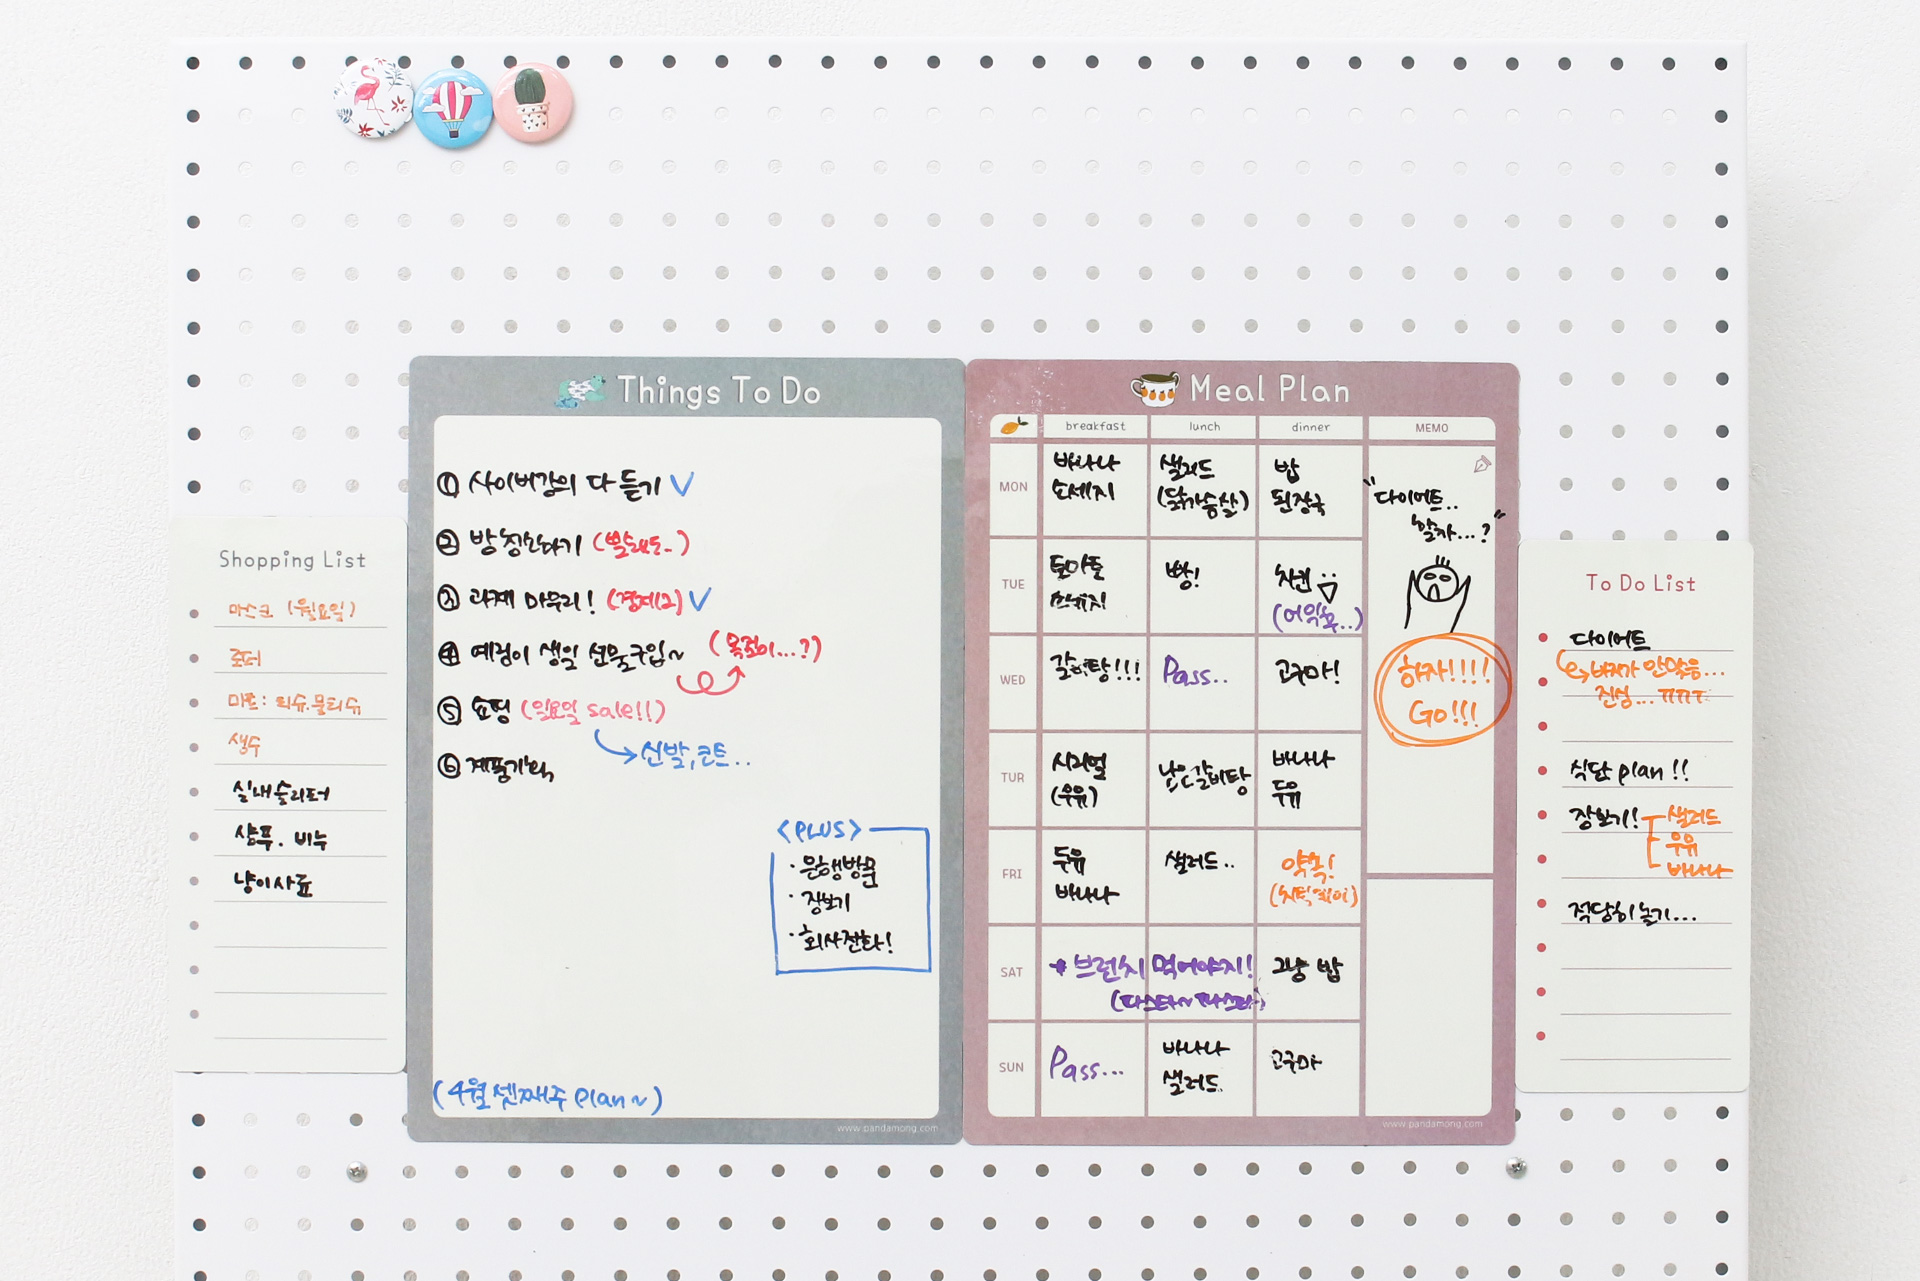 Shopping List
마스크 (월요일)
로터
마트: 티슈.물티슈
생수
실내슬리퍼
샴푸. 비누
냥이사료
Things To Do
① 사이버강의 다 듣기 ✓
② 방청소하기 (빨래도..)
③ 과제 마무리! (경제12) ✓
④ 예림이 생일 선물구입~ (목걸이...?)
⑤ 쇼핑 (일요일 sale!!)
신발, 코트..
⑥
<PLUS>
· 은행방문
· 장보기
· 회사전화!
(4월 셋째주 plan~)
www.pandamong.com
Meal Plan
breakfast lunch dinner MEMO
MON 바나나 소세지 샐러드 (닭가슴살) 밥 된장국
TUE 토마토 소세지 빵! 치킨 (어익후..)
WED 갈비탕!!! Pass.. 고구마!
TUR 시리얼 (우유) 남은갈비탕 바나나 두유
FRI 두유 바나나 샐러드.. 약속!
SAT * 브런치 먹어야지! 그냥 밥
(파스타~ 파스타~)
SUN Pass... 바나나 샐러드. 고구마
"다이어트..
할까...?"
하자!!!!
Go!!!
www.pandamong.com
To Do List
다이어트
바지가 안맞음...
진심... ㅠㅠㅠ
식단 plan!!
장보기! 샐러드
우유
바나나
적당히 놀기...